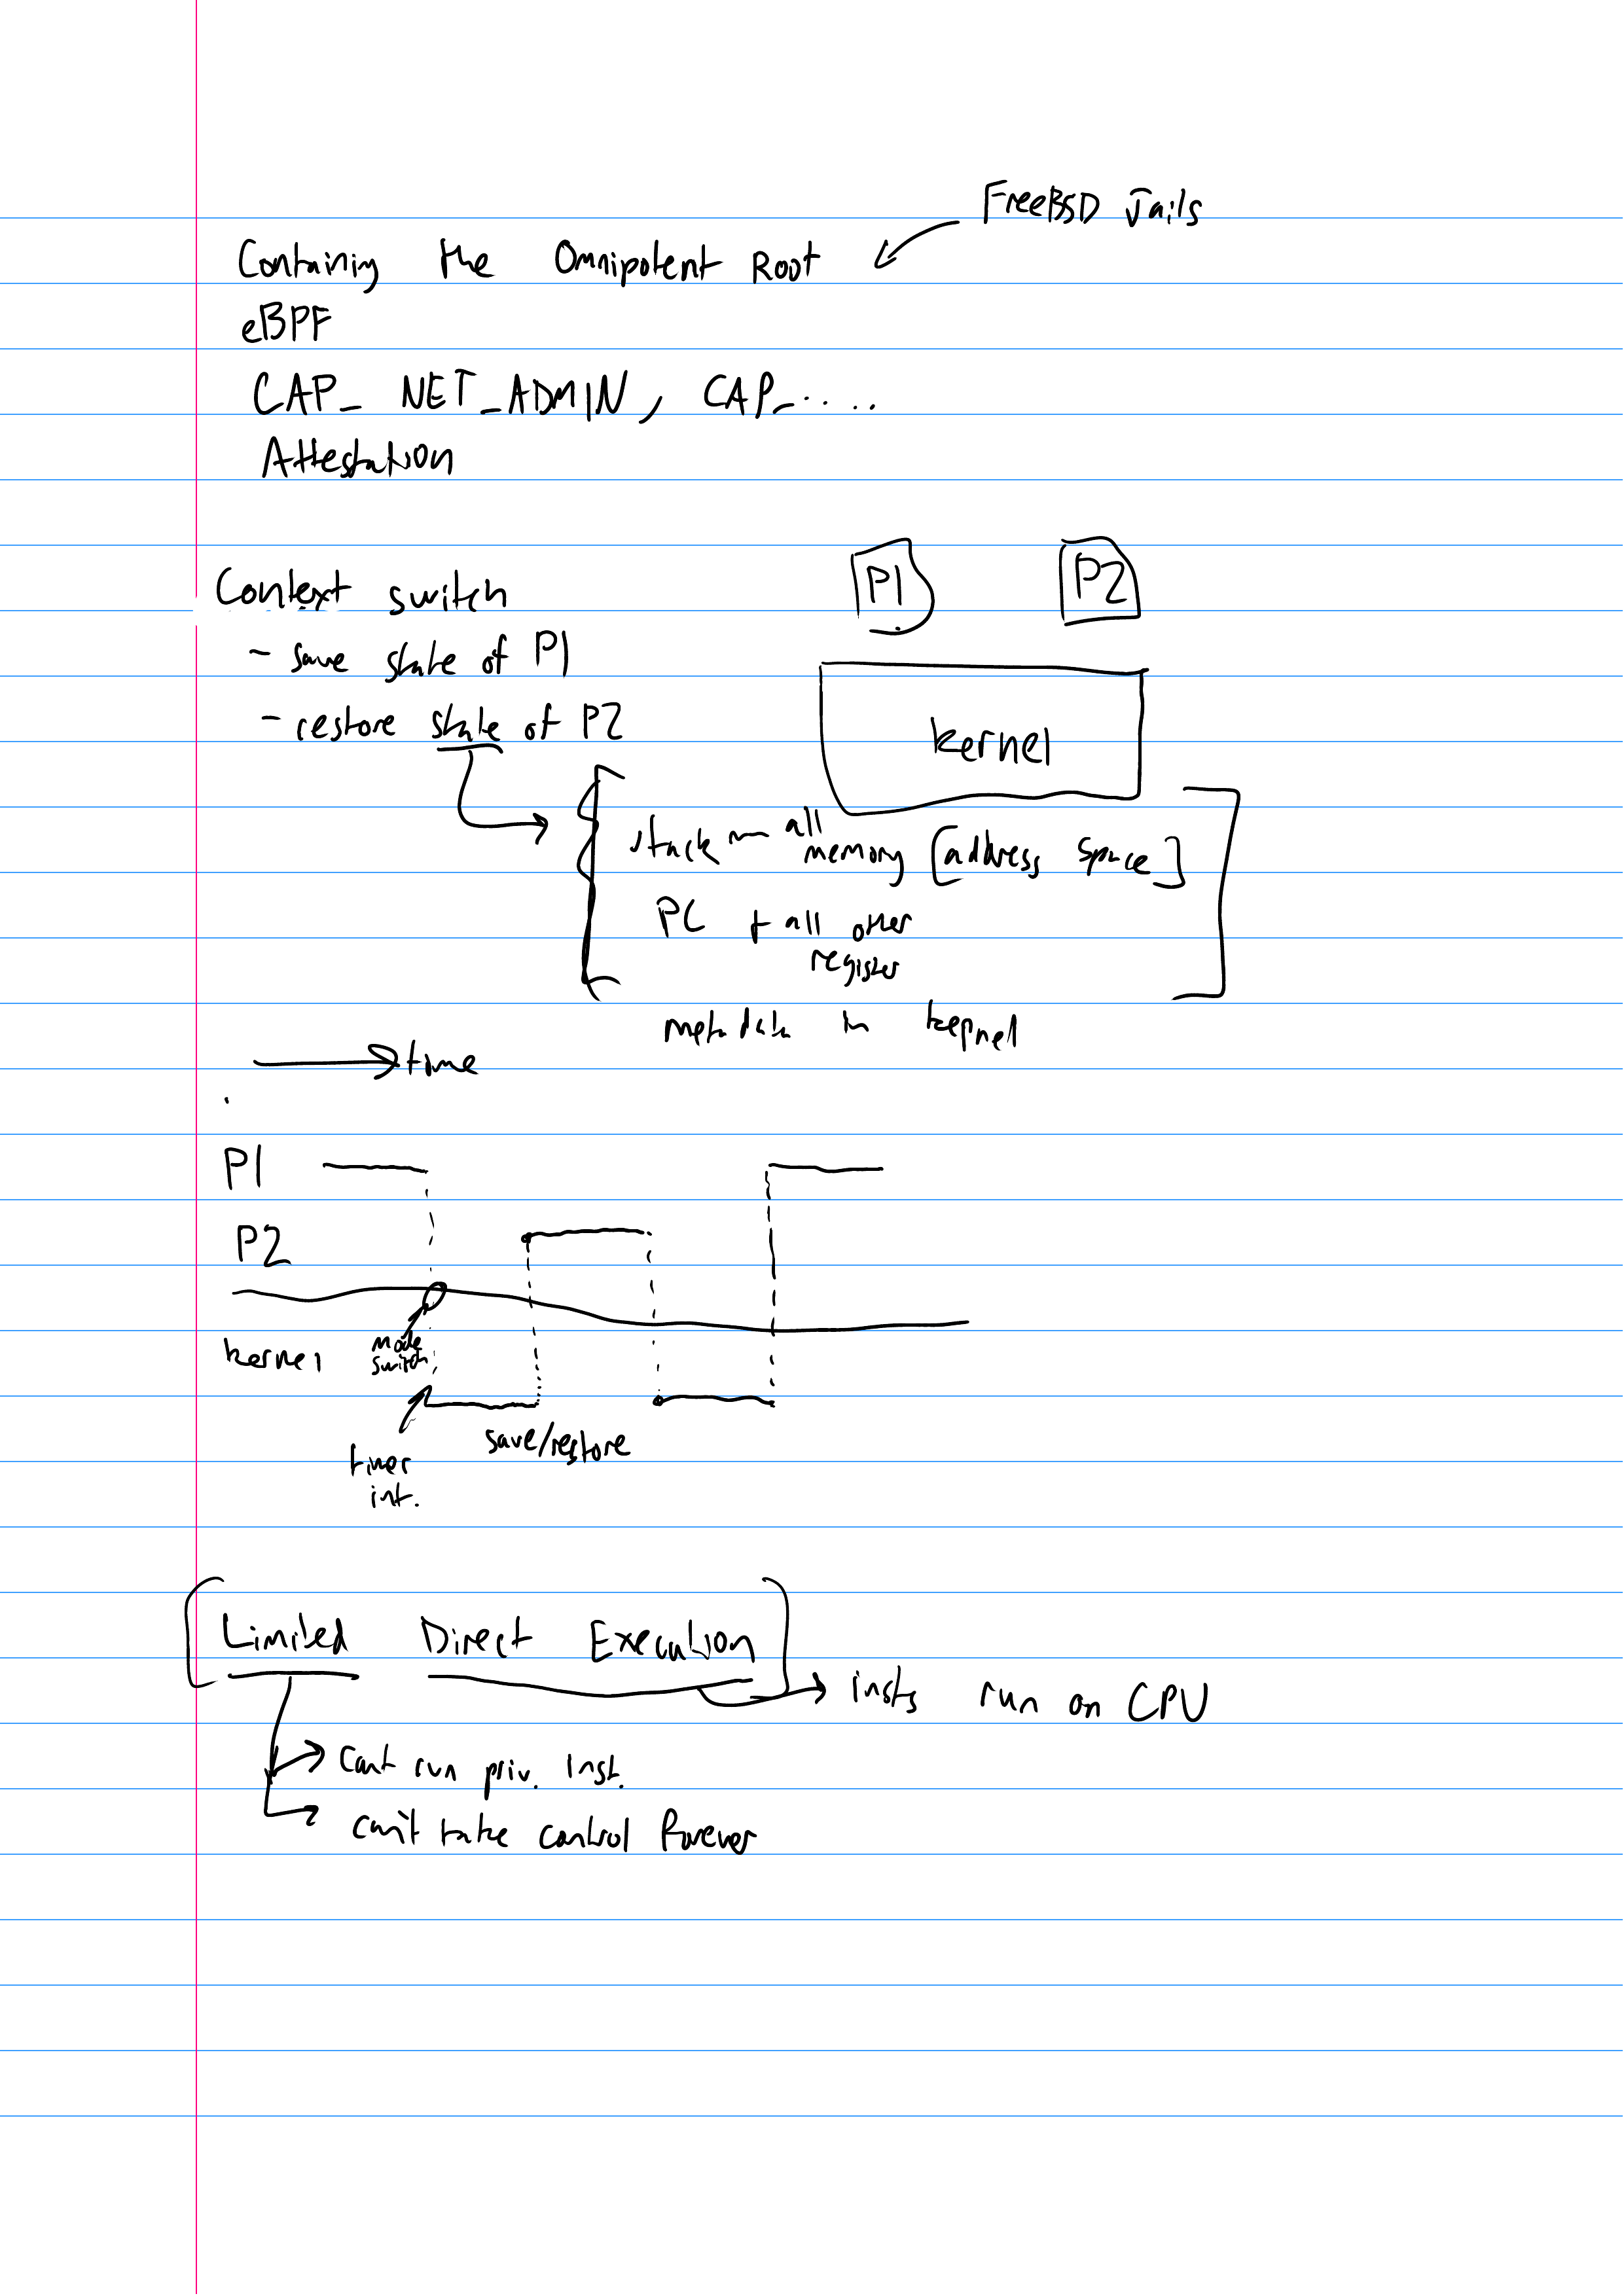 FreeBSD Jails
Containing the Omnipotent Root
eBPF
CAP_NET_ADMIN, CAP_....
Attestation
P1 P2
Context switch
- save state of P1
- restore state of P2
kernel
stack — all memory [address space]
PC + all other register
metadata in kernel
time
P1
P2
kernel
mode switch
save/restore
timer int.
Limited Direct Execution
insts run on CPU
Cant run priv. inst.
can't take control forever